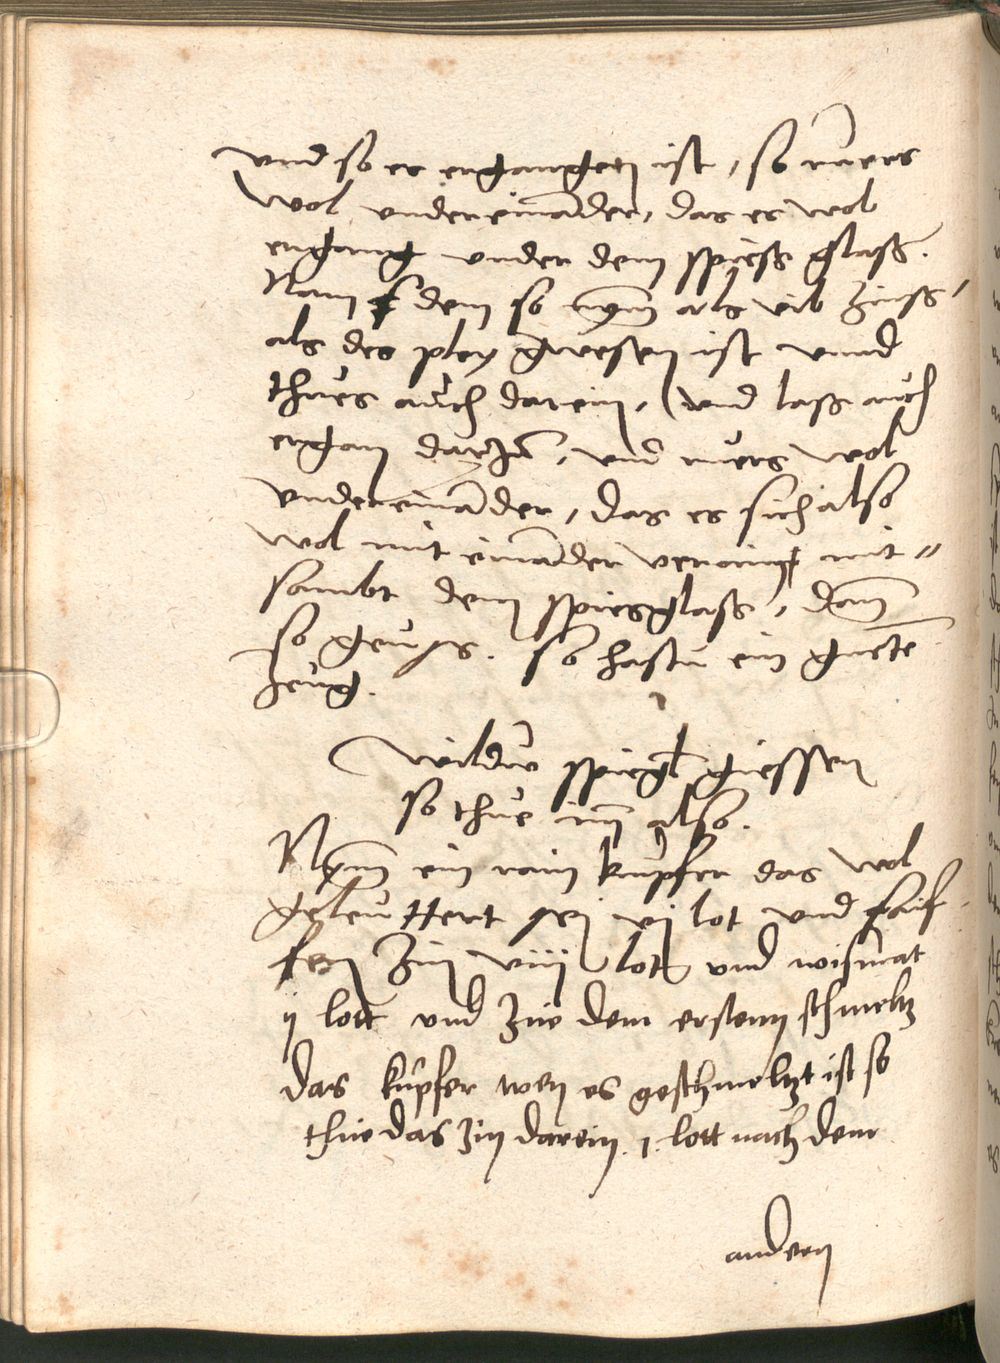 vnd so er ergangen ist, so ruers
wol vndereinander, das es wol
ergang vnder dem spiess glass.
Nam dem so nym als vil Zinss,
als des pley gwesen ist vnnd
thues auch darein, vnd lass auch
ergan darzu, vnd ruers wol
vndereinander, das es sich also
wol mit einander veraingt mit=
sambt dem spiesglass, dan
so geuss. so hastu ein guete
Zeug.
Wildu spiegl giessen
so thue im also.
Nym ein rain kupfer das wol
geleuttert sej vj lot vnd
Zin viiij lott vnd wismat
ij lott vnd zue dem erstenn schmeltz
das kupfer wen es geschmeltzt ist so
thue das Zin darein. j. lott nach dem
andern